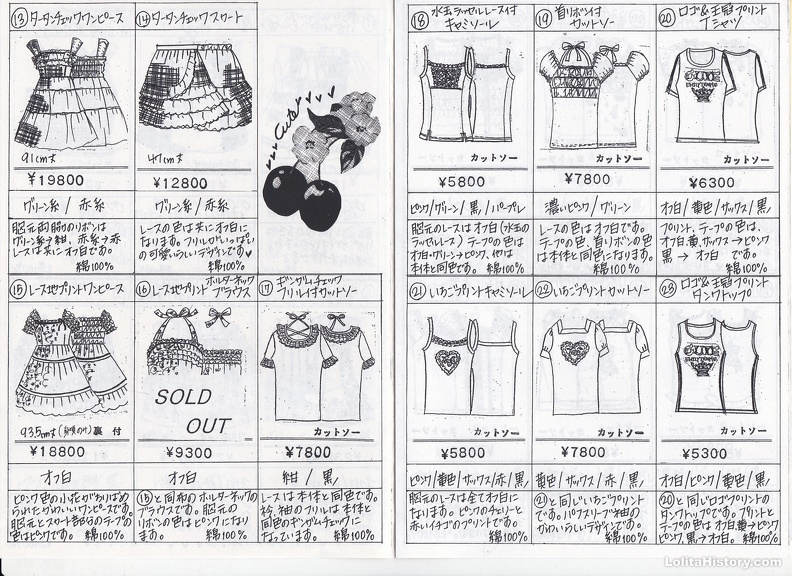 ⑬タータンチェックワンピース
91cm丈
¥19800
グリーン系/赤系
胸元両脇のリボンは
グリーン系→紺、赤系→赤
レースは共にオフ白です。
綿100%
⑭タータンチェックスカート
47cm丈
¥12800
グリーン系/赤系
レースの色は共にオフ白に
なります。フリルがいっぱい
の可愛いらしいデザインです♥
綿100%
Cute
⑮レース地プリントワンピース
93.5cm丈(肩紐のけ)裏付
¥18800
オフ白
ピンク色の小花がちりばめ
られたかわいいワンピースです。
胸元とスカート部分のテープの
色はピンクです。 綿100%
⑯レース地プリント ホルダーネック
ブラウス
SOLD
OUT
¥9300
オフ白
⑮と同布のホルターネックの
ブラウスです。胸元の
リボンの色はピンクになり
ます。 綿100%
⑰ギンガムチェック
フリル付カットソー
カットソー
¥7800
紺/黒
レースは本体と同色です。
衿、袖のフリルは本体と
同色のギンガムチェックに
なっています。 綿100%
⑱水玉ラッセルレース付
キャミソール
カットソー
¥5800
ピンク/グリーン/黒/パープル
胸元のレースはオフ白(水玉の
ラッセルレース)テープの色は
オフ白・グリーン→ピンク、他は
本体と同色です。 綿100%
⑲首リボン付
カットソー
カットソー
¥7800
濃いピンク/グリーン
レースの色はオフ白です。
テープの色、首リボンの色
は本体と同色になります。
綿100%
⑳ロゴ&王冠プリント
Tシャツ
カットソー
¥6300
オフ白/黄色/サックス/黒
プリント、テープの色は、
オフ白、黄、サックス→ピンク
黒→オフ白 です。
綿100%
㉑いちごプリントキャミソール
カットソー
¥5800
ピンク/黄色/サックス/赤/黒
胸元のレースは全てオフ白に
なります。ピンクのチェリーと
赤いイチゴのプリントです。
綿100%
㉒いちごプリントカットソー
カットソー
¥7800
黄色/サックス/赤/黒
㉑と同じいちごプリント
です。パフスリーブ袖の
かわいらしいデザインです。
綿100%
㉓ロゴ&王冠プリント
タンクトップ
カットソー
¥5300
オフ白/ピンク/黄色/黒
⑳と同じロゴプリントの
タンクトップです。プリントと
テープの色はオフ白、黄→ピンク
ピンク、黒→オフ白。 綿100%
LolitaHistory.com